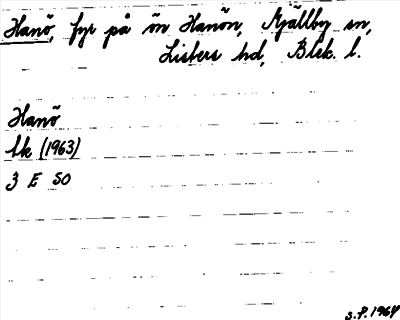 Hanö, fyr på ön Hanön, Mjällby sn,
Listers hd, Blek. l.
Hanö
Ek (1963)
3 E SO
S.P. 1964